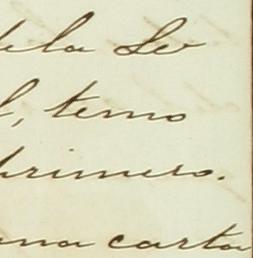 dela Se
l, temo
primero.
una carta